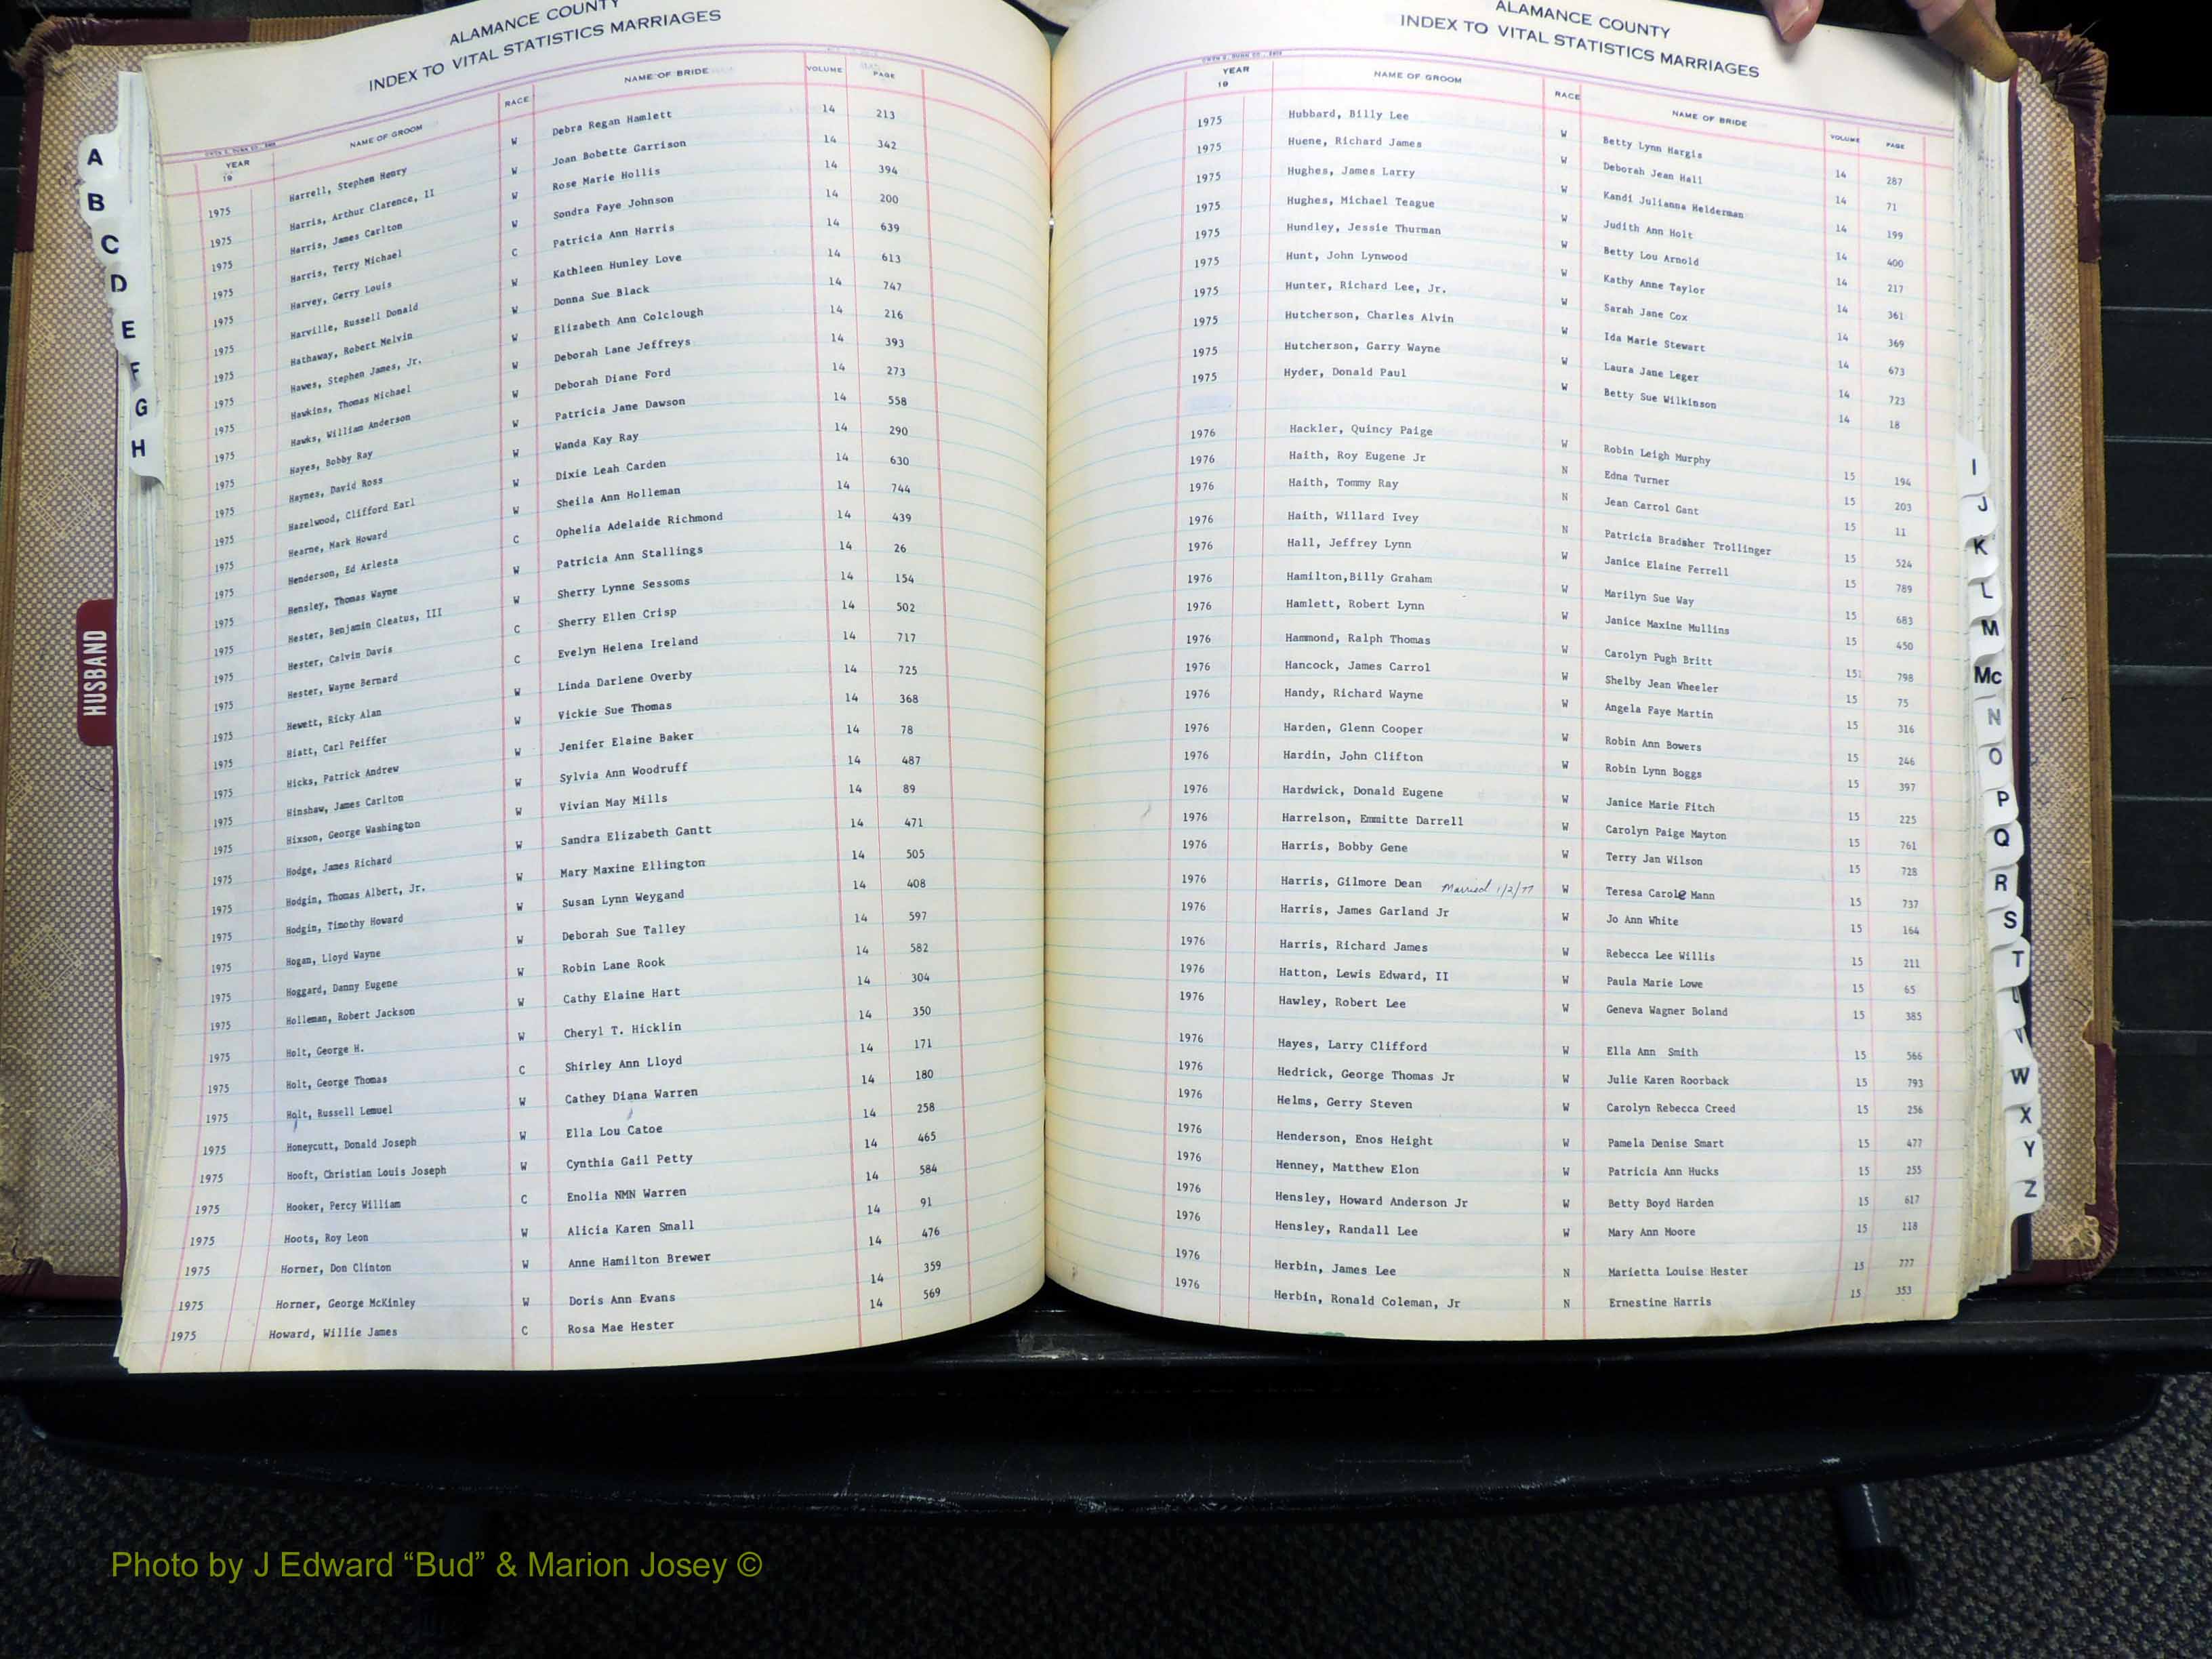 ALAMANCE COUNTY
INDEX TO VITAL STATISTICS MARRIAGES
YEAR 19 NAME OF GROOM RACE NAME OF BRIDE VOLUME PAGE
1975 Harrell, Stephen Henry W Debra Regan Hamlett 14 213
1975 Harris, Arthur Clarence, II W Joan Bobette Garrison 14 342
1975 Harris, James Carlton W Rose Marie Hollis 14 394
1975 Harris, Terry Michael W Sondra Faye Johnson 14 200
1975 Harvey, Gerry Louis C Patricia Ann Harris 14 639
1975 Harville, Russell Donald W Kathleen Hunley Love 14 613
1975 Hathaway, Robert Melvin W Donna Sue Black 14 747
1975 Hawes, Stephen James, Jr. W Elizabeth Ann Colclough 14 216
1975 Hawkins, Thomas Michael W Deborah Lane Jeffreys 14 393
1975 Hawks, William Anderson W Deborah Diane Ford 14 273
1975 Hayes, Bobby Ray W Patricia Jane Dawson 14 558
1975 Haynes, David Ross W Wanda Kay Ray 14 290
1975 Hazelwood, Clifford Earl W Dixie Leah Carden 14 630
1975 Hearne, Mark Howard W Sheila Ann Holleman 14 744
1975 Henderson, Ed Arlesta C Ophelia Adelaide Richmond 14 439
1975 Hensley, Thomas Wayne W Patricia Ann Stallings 14 26
1975 Hester, Benjamin Cleatus, III W Sherry Lynne Sessoms 14 154
1975 Hester, Calvin Davis C Sherry Ellen Crisp 14 502
1975 Hester, Wayne Bernard C Evelyn Helena Ireland 14 717
1975 Hewett, Ricky Alan W Linda Darlene Overby 14 725
1975 Hiatt, Carl Peiffer W Vickie Sue Thomas 14 368
1975 Hicks, Patrick Andrew W Jenifer Elaine Baker 14 78
1975 Hinshaw, James Carlton W Sylvia Ann Woodruff 14 487
1975 Hixson, George Washington W Vivian May Mills 14 89
1975 Hodge, James Richard W Sandra Elizabeth Gantt 14 471
1975 Hodgin, Thomas Albert, Jr. W Mary Maxine Ellington 14 505
1975 Hodgin, Timothy Howard W Susan Lynn Weygand 14 408
1975 Hogan, Lloyd Wayne W Deborah Sue Talley 14 597
1975 Hoggard, Danny Eugene W Robin Lane Rook 14 582
1975 Holleman, Robert Jackson W Cathy Elaine Hart 14 304
1975 Holt, George H. W Cheryl T. Hicklin 14 350
1975 Holt, George Thomas C Shirley Ann Lloyd 14 171
1975 Holt, Russell Lemuel W Cathey Diana Warren 14 180
1975 Honeycutt, Donald Joseph W Ella Lou Catoe 14 258
1975 Hooft, Christian Louis Joseph W Cynthia Gail Petty 14 465
1975 Hooker, Percy William C Enolia NMN Warren 14 584
1975 Hoots, Roy Leon W Alicia Karen Small 14 91
1975 Horner, Don Clinton W Anne Hamilton Brewer 14 476
1975 Horner, George McKinley W Doris Ann Evans 14 359
1975 Howard, Willie James C Rosa Mae Hester 14 569
A
B
C
D
E
F
G
H
HUSBAND
ALAMANCE COUNTY
INDEX TO VITAL STATISTICS MARRIAGES
YEAR 19 NAME OF GROOM RACE NAME OF BRIDE VOLUME PAGE
1975 Hubbard, Billy Lee W Betty Lynn Hargis 14 287
1975 Huene, Richard James W Deborah Jean Hall 14 71
1975 Hughes, James Larry W Kandi Julianna Helderman 14 199
1975 Hughes, Michael Teague W Judith Ann Holt 14 400
1975 Hundley, Jessie Thurman W Betty Lou Arnold 14 217
1975 Hunt, John Lynwood W Kathy Anne Taylor 14 361
1975 Hunter, Richard Lee, Jr. W Sarah Jane Cox 14 369
1975 Hutcherson, Charles Alvin W Ida Marie Stewart 14 673
1975 Hutcherson, Garry Wayne W Laura Jane Leger 14 723
1975 Hyder, Donald Paul W Betty Sue Wilkinson 14 18
1976 Hackler, Quincy Paige W Robin Leigh Murphy 15 194
1976 Haith, Roy Eugene Jr N Edna Turner 15 203
1976 Haith, Tommy Ray N Jean Carrol Gant 15 11
1976 Haith, Willard Ivey N Patricia Bradsher Trollinger 15 524
1976 Hall, Jeffrey Lynn W Janice Elaine Ferrell 15 789
1976 Hamilton,Billy Graham W Marilyn Sue Way 15 683
1976 Hamlett, Robert Lynn W Janice Maxine Mullins 15 450
1976 Hammond, Ralph Thomas W Carolyn Pugh Britt 15 798
1976 Hancock, James Carrol W Shelby Jean Wheeler 15 75
1976 Handy, Richard Wayne W Angela Faye Martin 15 316
1976 Harden, Glenn Cooper W Robin Ann Bowers 15 246
1976 Hardin, John Clifton W Robin Lynn Boggs 15 397
1976 Hardwick, Donald Eugene W Janice Marie Fitch 15 225
1976 Harrelson, Emmitte Darrell W Carolyn Paige Mayton 15 761
1976 Harris, Bobby Gene W Terry Jan Wilson 15 728
1976 Harris, Gilmore Dean Married 1/2/77 W Teresa Carole Mann 15 737
1976 Harris, James Garland Jr W Jo Ann White 15 164
1976 Harris, Richard James W Rebecca Lee Willis 15 211
1976 Hatton, Lewis Edward, II W Paula Marie Lowe 15 65
1976 Hawley, Robert Lee W Geneva Wagner Boland 15 385
1976 Hayes, Larry Clifford W Ella Ann Smith 15 566
1976 Hedrick, George Thomas Jr W Julie Karen Roorback 15 793
1976 Helms, Gerry Steven W Carolyn Rebecca Creed 15 256
1976 Henderson, Enos Height W Pamela Denise Smart 15 477
1976 Henney, Matthew Elon W Patricia Ann Hucks 15 255
1976 Hensley, Howard Anderson Jr W Betty Boyd Harden 15 617
1976 Hensley, Randall Lee W Mary Ann Moore 15 118
1976 Herbin, James Lee N Marietta Louise Hester 15 777
1976 Herbin, Ronald Coleman, Jr N Ernestine Harris 15 353
I
J
K
L
M
Mc
N
O
P
Q
R
S
T
V
W
X
Y
Z
Photo by J Edward “Bud” & Marion Josey ©